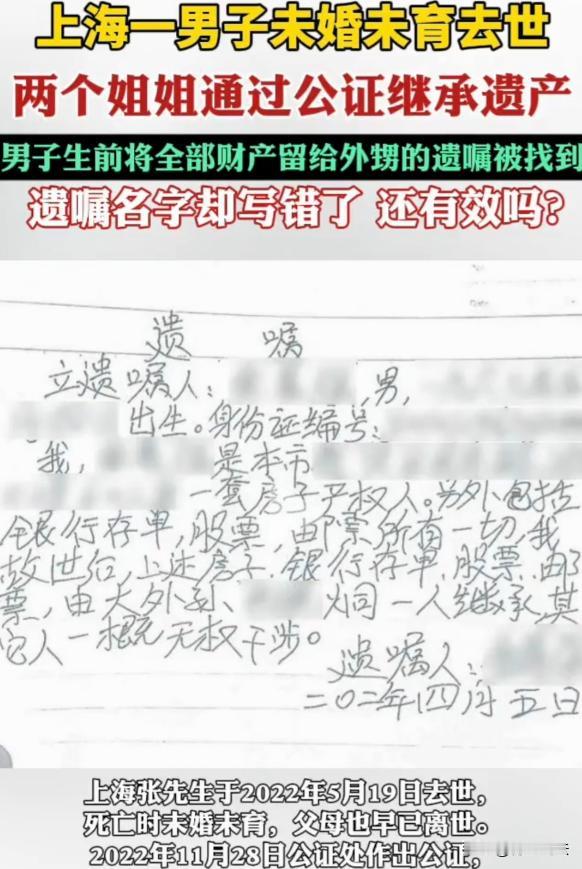 上海一男子未婚未育去世
两个姐姐通过公证继承遗产
男子生前将全部财产留给外甥的遗嘱被找到
遗嘱名字却写错了 还有效吗?
遗嘱
立遗嘱人: ,男,
出生。身份证编号:
我, 是本市
一套房子产权人。另外包括
银行存单,股票,邮票所有一切,我
故世后,上述房子.银行存单.股票.邮
票,由大外孙 炯一人继承,其
它人一概无权干涉。
遗嘱人:
二〇二年四月五日
上海张先生于2022年5月19日去世,
死亡时未婚未育,父母也早已离世。
2022年11月28日公证处作出公证,